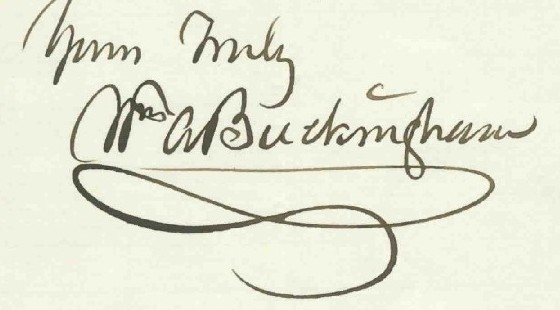 Yours Truly
Wm A Buckingham